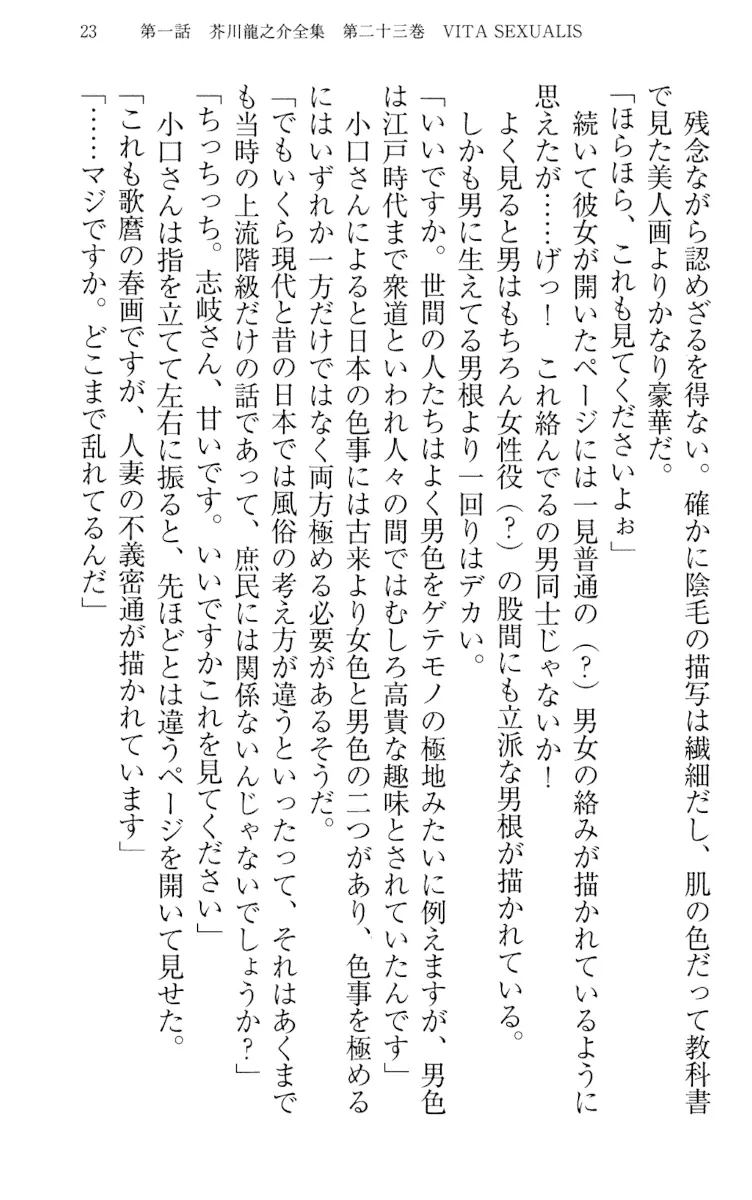 23　第一話　芥川龍之介全集　第二十三巻　VITA SEXUALIS
　残念ながら認めざるを得ない。確かに陰毛の描写は繊細だし、肌の色だって教科書
で見た美人画よりかなり豪華だ。
「ほらほら、これも見てくださいよぉ」
　続いて彼女が開いたページには一見普通の（？）男女の絡みが描かれているように
思えたが……げっ！　これ絡んでるの男同士じゃないか！
　よく見ると男はもちろん女性役（？）の股間にも立派な男根が描かれている。
　しかも男に生えてる男根より一回りはデカい。
「いいですか。世間の人たちはよく男色をゲテモノの極地みたいに例えますが、男色
は江戸時代まで衆道といわれ人々の間ではむしろ高貴な趣味とされていたんです」
　小口さんによると日本の色事には古来より女色と男色の二つがあり、色事を極める
にはいずれか一方だけではなく両方極める必要があるそうだ。
「でもいくら現代と昔の日本では風俗の考え方が違うといったって、それはあくまで
も当時の上流階級だけの話であって、庶民には関係ないんじゃないでしょうか？」
「ちっちっち。志岐さん、甘いです。いいですかこれを見てください」
　小口さんは指を立てて左右に振ると、先ほどとは違うページを開いて見せた。
「これも歌麿の春画ですが、人妻の不義密通が描かれています」
「……マジですか。どこまで乱れてるんだ」